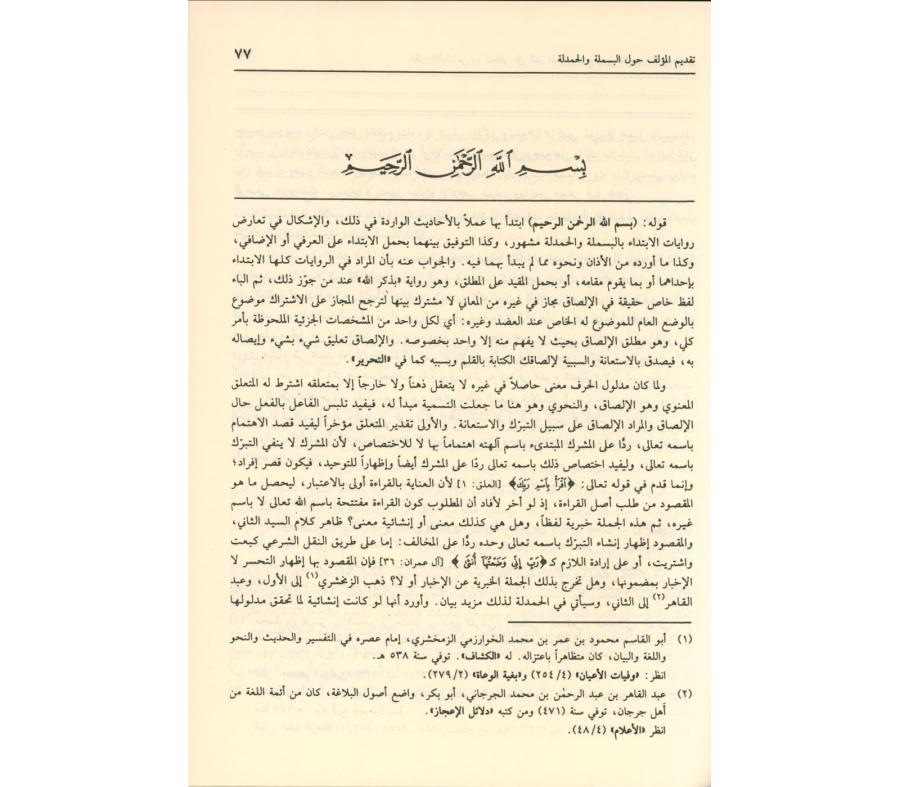 تقديم المؤلف حول البسملة والحمدلة ٧٧
بِسْمِ ٱللَّهِ ٱلرَّحْمَٰنِ ٱلرَّحِيمِ
قوله: (بسم الله الرحمن الرحيم) ابتدأ بها عملاً بالأحاديث الواردة في ذلك، والإشكال في تعارض
روايات الابتداء بالبسملة والحمدلة مشهور، وكذا التوفيق بينهما بحمل الابتداء على العرفي أو الإضافي،
وكذا ما أورده من الأذان ونحوه مما لم يبدأ بهما فيه. والجواب عنه بأن المراد في الروايات كلها الابتداء
بإحداهما أو بما يقوم مقامه، أو بحمل المقيد على المطلق، وهو رواية «بذكر الله» عند من جوّز ذلك، ثم الباء
لفظ خاص حقيقة في الإلصاق مجاز في غيره من المعاني لا مشترك بينها لترجح المجاز على الاشتراك موضوع
بالوضع العام للموضوع له الخاص عند العضد وغيره: أي لكل واحد من المشخصات الجزئية الملحوظة بأمر
كلي، وهو مطلق الإلصاق بحيث لا يفهم منه إلا واحد بخصوصه. والإلصاق تعليق شيء بشيء وإيصاله
به، فيصدق بالاستعانة والسببية لإلصاقك الكتابة بالقلم وبسببه كما في «التحرير».
ولما كان مدلول الحرف معنى حاصلاً في غيره لا يتعقل ذهناً ولا خارجاً إلا بمتعلقه اشترط له المتعلق
المعنوي وهو الإلصاق، والنحوي وهو هنا ما جعلت التسمية مبدأ له، فيفيد تلبس الفاعل بالفعل حال
الإلصاق والمراد الإلصاق على سبيل التبرّك والاستعانة. والأولى تقدير المتعلق مؤخراً ليفيد قصد الاهتمام
باسمه تعالى، ردًّا على المشرك المبتدىء باسم آلهته اهتماماً بها لا للاختصاص، لأن المشرك لا ينفي التبرّك
باسمه تعالى، وليفيد اختصاص ذلك باسمه تعالى ردًا على المشرك أيضاً وإظهاراً للتوحيد، فيكون قصر إفراد؛
وإنما قدم في قوله تعالى: ﴿ٱقْرَأْ بِٱسْمِ رَبِّكَ﴾ [العلق: ١] لأن العناية بالقراءة أولى بالاعتبار، ليحصل ما هو
المقصود من طلب أصل القراءة، إذ لو أخر لأفاد أن المطلوب كون القراءة مفتتحة باسم الله تعالى لا باسم
غيره، ثم هذه الجملة خبرية لفظاً، وهل هي كذلك معنى أو إنشائية معنى؟ ظاهر كلام السيد الثاني،
والمقصود إظهار إنشاء التبرّك باسمه تعالى وحده ردًّا على المخالف: إما على طريق النقل الشرعي كبعت
واشتريت، أو على إرادة اللازم كـ﴿رَبِّ إِنِّى وَضَعْتُهَآ أُنثَىٰ﴾ [آل عمران: ٣٦] فإن المقصود بها إظهار التحسر لا
الإخبار بمضمونها، وهل تخرج بذلك الجملة الخبرية عن الإخبار أو لا؟ ذهب الزمخشري(١) إلى الأول، وعبد
القاهر(٢) إلى الثاني، وسيأتي في الحمدلة لذلك مزيد بيان. وأورد أنها لو كانت إنشائية لما تحقق مدلولها
(١) أبو القاسم محمود بن عمر بن محمد الخوارزمي الزمخشري، إمام عصره في التفسير والحديث والنحو
واللغة والبيان، كان متظاهراً باعتزاله. له «الكشاف». توفي سنة ٥٣٨ هـ.
انظر: «وفيات الأعيان» (٢٥٤/٤) و«بغية الوعاة» (٢٧٩/٢).
(٢) عبد القاهر بن عبد الرحمٰن بن محمد الجرجاني، أبو بكر، واضع أصول البلاغة، كان من أئمة اللغة من
أهل جرجان، توفي سنة (٤٧١) ومن كتبه «دلائل الإعجاز».
انظر «الأعلام» (٤٨/٤).